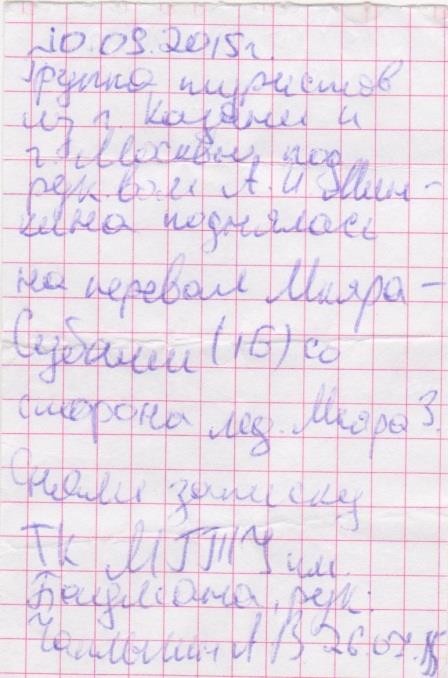 10.09.2015г.
Группа туристов
из г. Казани и
г. Москвы под
рук-вом А.И.
поднялась
на перевал Мкяра-
Субаши (1Б) со
сторона лед. Мкяра З.
Сняли записку
ТК МГТУ им.
Баумана, рук.
А В 26.07.